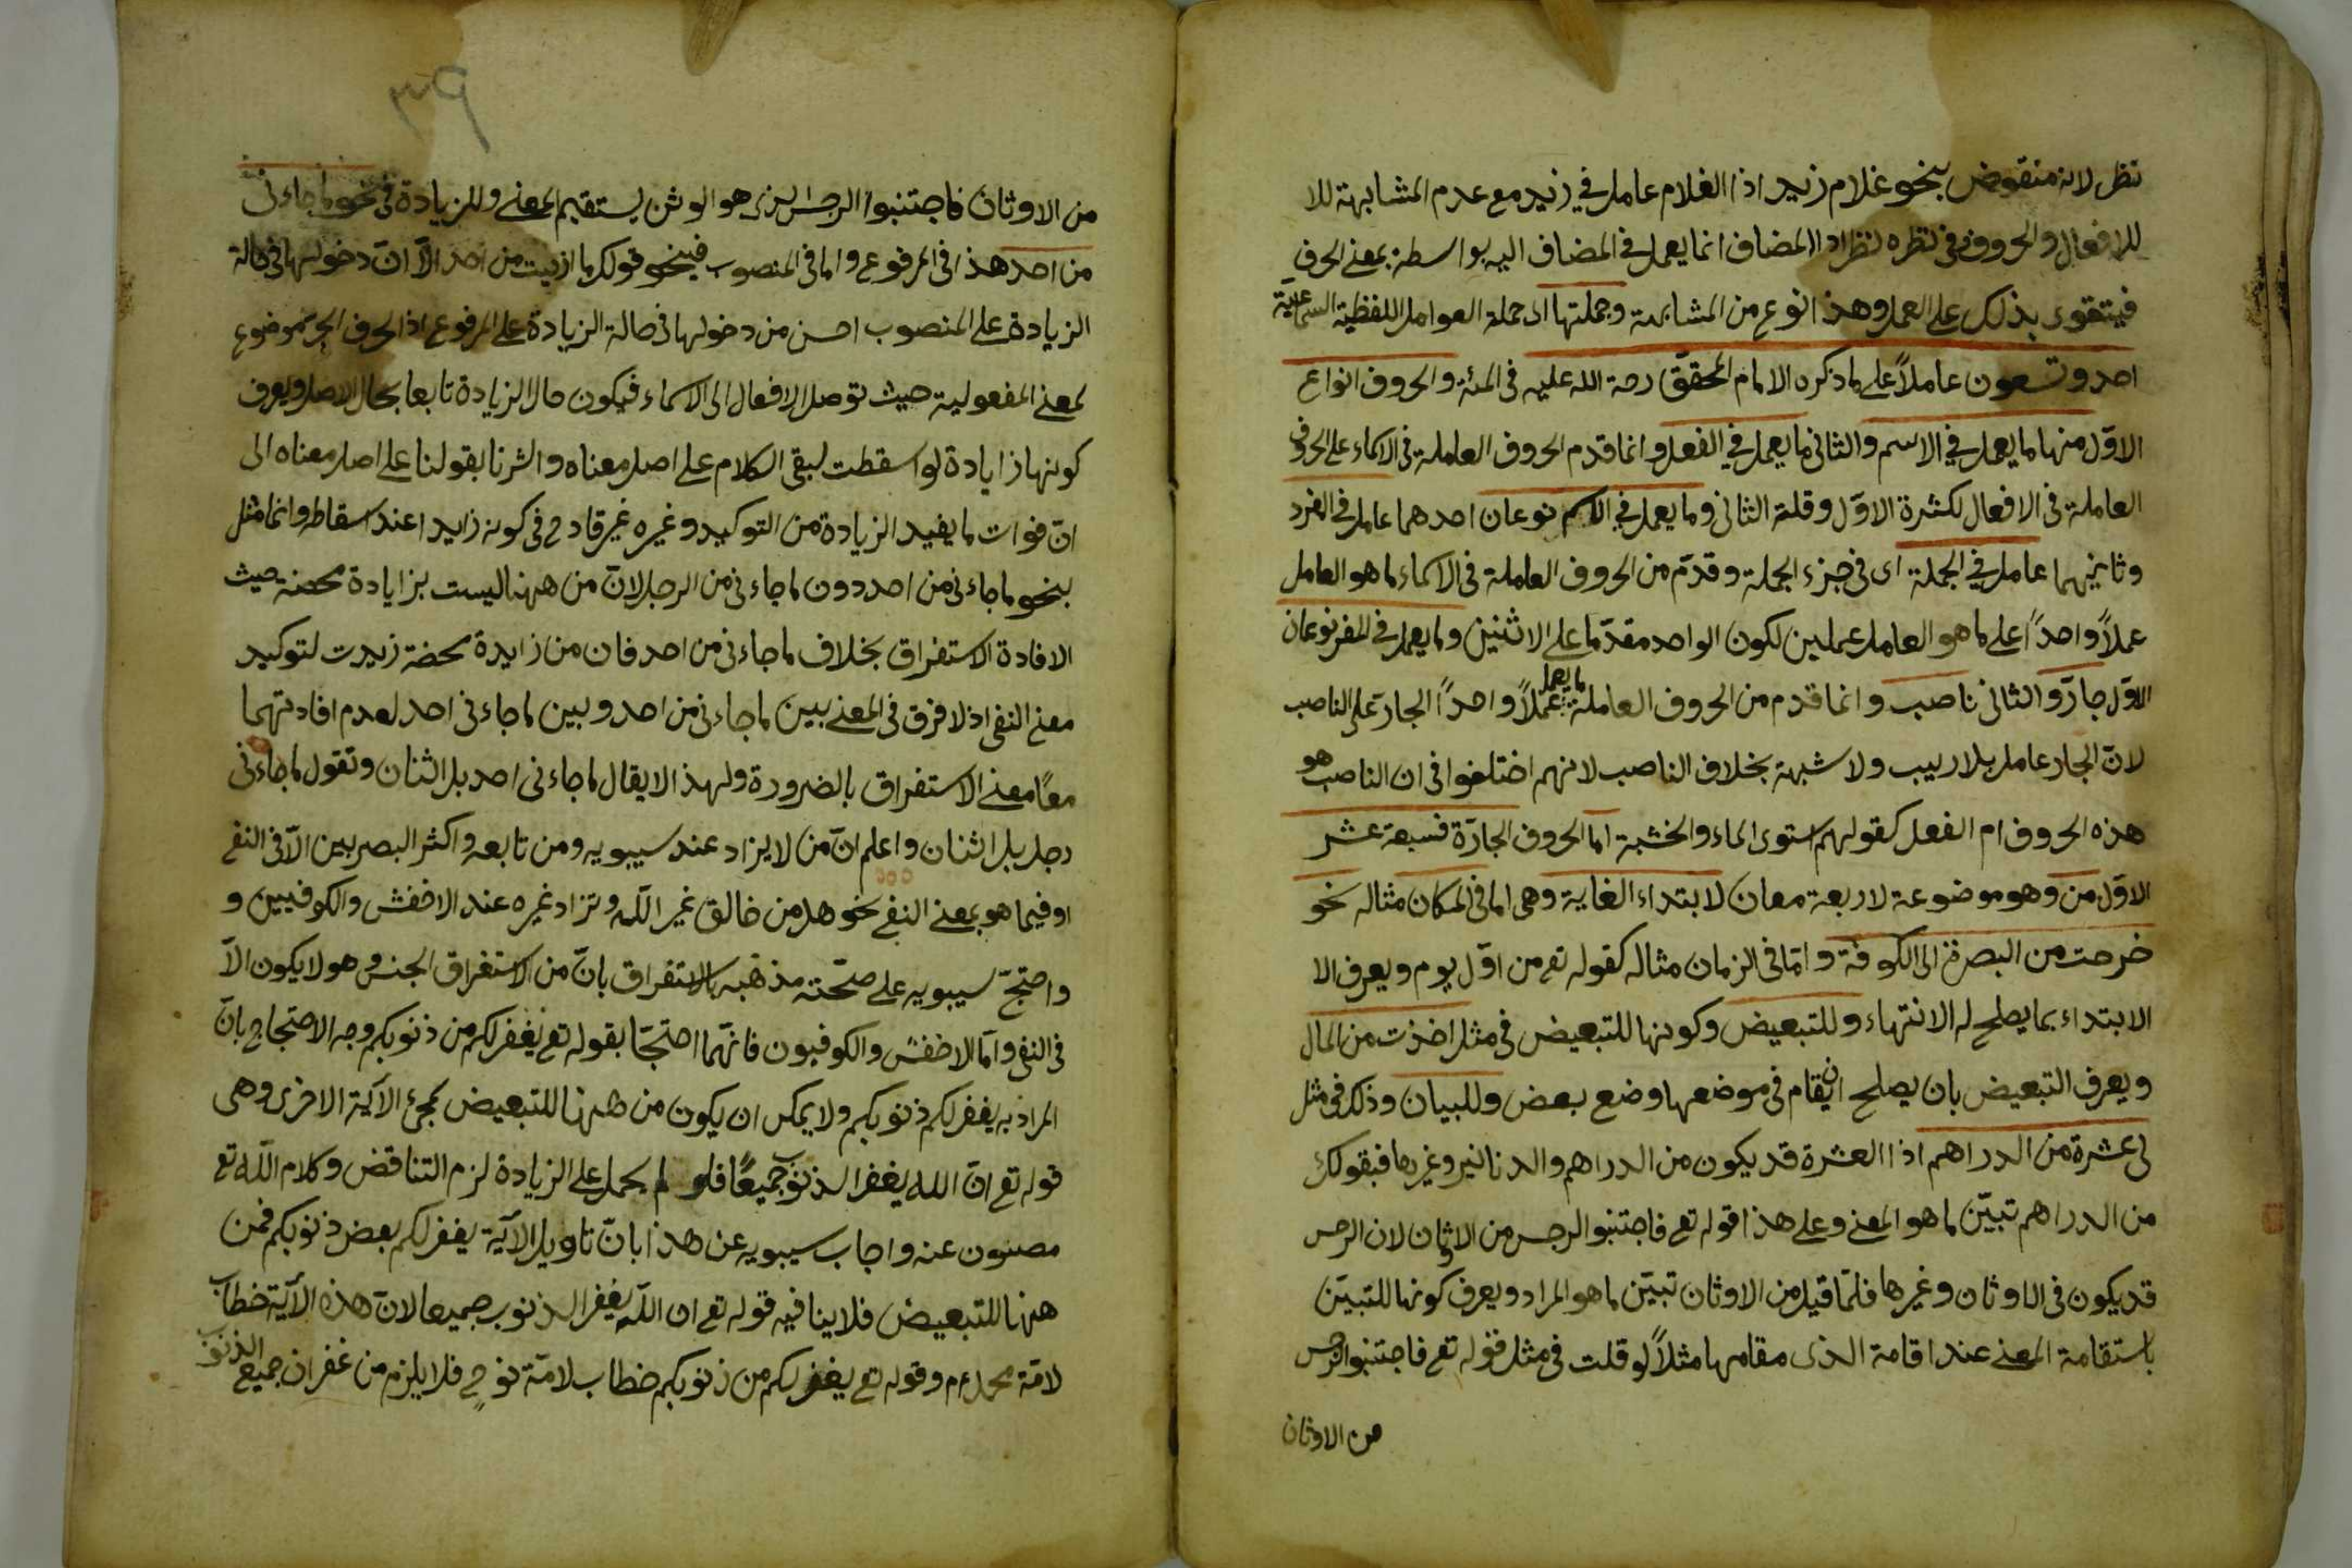 نظر لانه منقوض بنحو غلام زيد اذا الغلام عامل في زيد مع عدم المشابهة للا
للافعال والحروف وفى نظره نظر اذا المضاف انما يعمل في المضاف اليه بواسطة بمعنى الحرف
فيتقوى بذلك على العمل وهذا النوع من المشابهة وجملتها اى جملة العوامل اللفظية السماعية
احد وتسعون عاملاً على ما ذكره الامام المحقق رحمة الله عليه فى المئة والحروف انواع
الاوّل منها ما يعمل في الاسم والثانى ما يعمل في الفعل وانما قدم الحروف العاملة فى الاسماء على الحروف
العاملة فى الافعال لكثرة الاوّل وقلة الثانى وما يعمل في الاسم نوعان احدهما عامل فى المفرد
وثانيهما عامل في الجملة اى فى جزء الجملة وقدّم من الحروف العاملة فى الاسماء ما هو العامل
عملاً واحداً على ما هو العامل عملين لكون الواحد مقدّما على الاثنين وما يعمل فى المفرد نوعان
الاوّل جارّ والثانى ناصب وانما قدم من الحروف العاملة ما يعمل عملاً واحداً الجار على الناصب
لانّ الجار عامل بلا ريب ولا شبهة بخلاف الناصب لانهم اختلفوا فى ان الناصب هو
هذه الحروف ام الفعل كقولهم استوى الماء والخشبة اما الحروف الجارّة فسبعة عشر
الاوّل من وهو موضوعة لاربعة معان لابتداء الغاية وهى اما فى المكان مثاله نحو
خرجت من البصرة الى الكوفة وامّا فى الزمان مثاله كقوله تع من اوّل يوم ويعرف الا
الابتداء بما يصلح له الانتهاء وللتبعيض وكونها للتبعيض فى مثل اخذت من المال
ويعرف التبعيض بان يصلح ان يقام فى موضعها وضع بعض وللبيان وذلك فى مثل
لى عشرة من الدراهم اذا العشرة قد يكون من الدراهم والدنانير وغيرها فبقولك
من الدراهم تبيّن ما هو المعنى وعلى هذا قوله تع فاجتنبوا الرجس من الاوثان لان الرجس
قد يكون فى الاوثان وغيرها فلمّا قيل من الاوثان تبيّن ما هو المراد ويعرف كونها للتبيّن
باستقامة المعنى عند اقامة الذى مقامها مثلاً لو قلت فى مثل قوله تع فاجتنبوا الرجس
من الاوثان
من الاوثان فاجتنبوا الرجس الذى هو الوثن يستقيم المعنى وللزيادة فى نحو ما جاءنى
من احد هذا فى المرفوع واما فى المنصوب فينحو قولك ما رايت من احد الاّ انّ دخولها فى حالة
الزيادة على المنصوب احسن من دخولها فى حالة الزيادة على المرفوع اذ الحرف الجر موضوع
لمعنى المفعولية حيث توصل الافعال الى الاسماء فيكون حال الزيادة تابعا بحال الاصل ويعرف
كونها زايادة لو اسقطت لبقى الكلام على اصل معناه واشرنا بقولنا على اصل معناه الى
انّ فوات ما يفيد الزيادة من التوكيد وغيره غير قادح فى كونه زايدا عند اسقاطه وانما مثل
بنحو ما جاءنى من احد دون ما جاءنى من الرجل لانّ من ههنا ليست بزايادة محضة حيث
الافادة الاستغراق بخلاف ما جاءنى من احد فان من زايدة محضة زيدت لتوكيد
معنى النفى اذ لا فرق فى المعنى بين ما جاءنى من احد وبين ما جاءنى احد لعدم افادتهما
معاً معنى الاستغراق بالضرورة ولهذا لا يقال ما جاءنى احد بل اثنان وتقول ما جاءنى
رجل بل اثنان واعلم انّ من لا يزاد عند سيبويه ومن تابعه واكثر البصريين الاّ فى النفى
او فيما هو بمعنى النفى نحو هل من خالق غير اللّه وتزاد غيره عند الاخفش والكوفيين و
واحتجّ سيبويه على صحّة مذهبه بالاستقراق بانّ من الاستغراق الجنس وهو لا يكون الاّ
فى النفى وامّا الاخفش والكوفيون فانّهما احتجّا بقوله تع يغفر لكم من ذنوبكم وجه الاحتجاج بانّ
المراد به يغفر لكم ذنوبكم ولا يمكن ان يكون من ههنا للتبعيض لمجئ الآية الاخرى وهى
قوله تع انّ الله يغفر الذنوب جميعاً فلو لم يحمل على الزيادة لزم التناقض وكلام اللّه تع
مصون عنه واجاب سيبويه عن هذا بانّ تاويل الآية يغفر لكم بعض ذنوبكم فمن
ههنا للتبعيض فلا ينافيه قوله تع ان اللّه يغفر الذنوب جميعا لانّ هذه الآية خطاب
لامّة محمد عم وقوله تع يغفر لكم من ذنوبكم خطاب لامّة نوح فلا يلزم من غفران جميع الذنوب